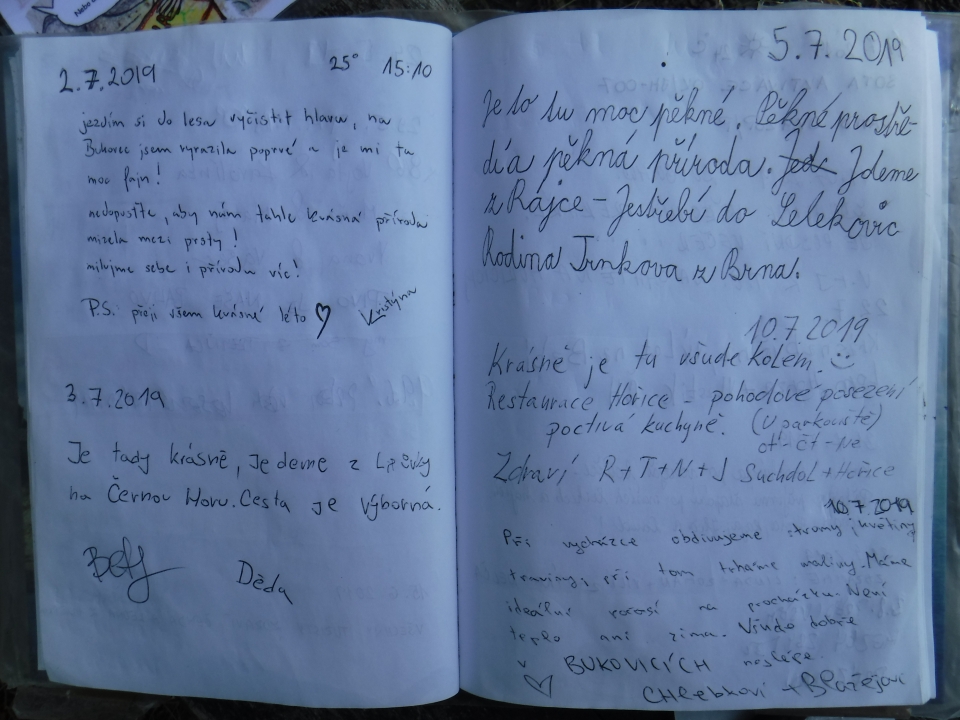 2.7.2019 25° 15:10
jezdím si do lesa vyčistit hlavu, na
Bukovec jsem vyrazila poprvé a je mi tu
moc fajn!
nedopusťte, aby nám tahle krásná příroda
mizela mezi prsty!
milujme sebe i přírodu víc!
P.S. přeji všem krásné léto ♡ Kristýna
3.7.2019
Je tady krásně, Jedeme z
na Černou Horu. Cesta je výborná.
Děda
5.7.2019
Je to tu moc pěkné. Pěkné prostře-
dí a pěkná příroda. Jdeme
z Rájce - Jestřebí do Lelekovic
Rodina Trnkova z Brna.
10.7.2019
Krásně je tu všude kolem. :)
Restaurace Hořice - pohodové posezení
poctivá kuchyně. (U parkoviště)
čt - Ne
Zdraví R+T+N+J Suchdol + Hořice
10.7.2019
Při vycházce obdivujeme stromy, květiny
traviny, při tom trháme maliny. Máme
ideální počasí na procházku. Není
teplo ani zima. Všude dobře
v BUKOVICÍCH nejlépe.
♡ Chlebkovi + Blažejovi